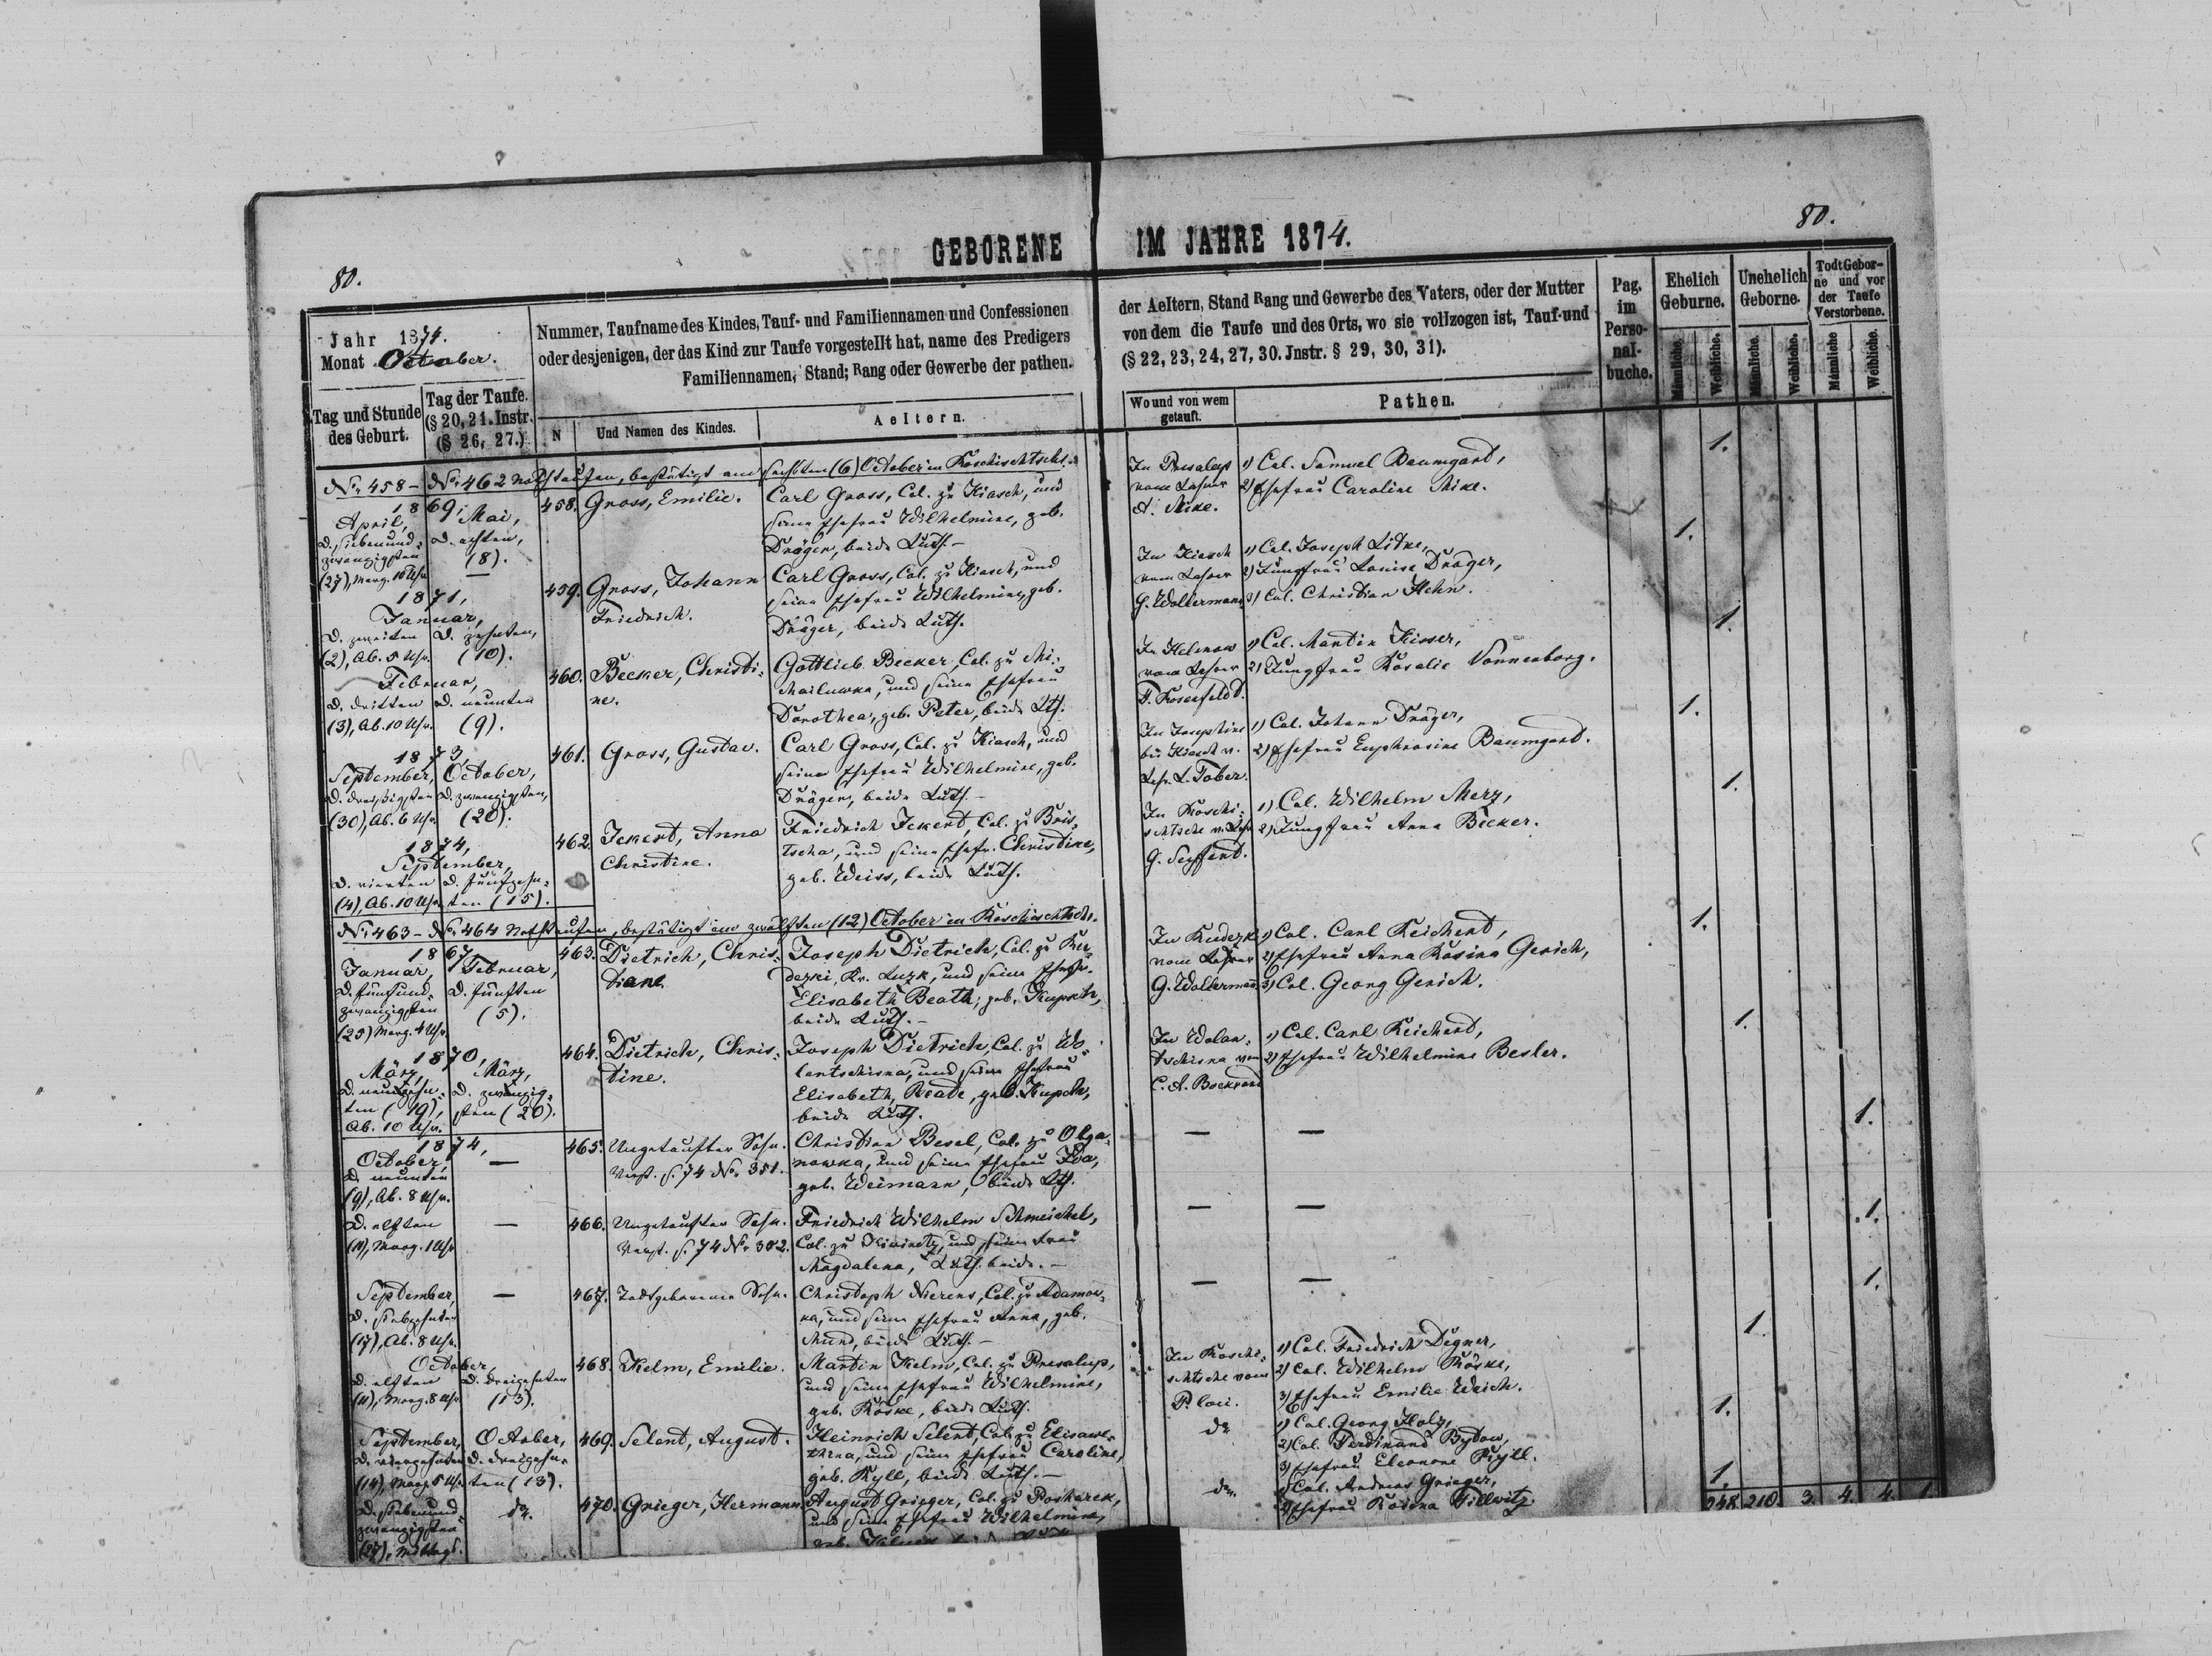 80.
GEBORENE IM JAHRE 1874.
80.
Jahr 1874.
Monat October.
Tag und Stunde
des Geburt.
Tag der Taufe.
(§ 20, 21. Instr.
(§ 26, 27.)
Nummer, Taufname des Kindes, Tauf- und Familiennamen und Confessionen
oder desjenigen, der das Kind zur Taufe vorgestellt hat, name des Predigers
Familiennamen, Stand; Rang oder Gewerbe der pathen.
N
Und Namen des Kindes.
Aeltern.
der Aeltern, Stand Rang und Gewerbe des Vaters, oder der Mutter
von dem die Taufe und des Orts, wo sie vollzogen ist, Tauf-und
(§ 22, 23, 24, 27, 30. Jnstr. § 29, 30, 31).
Wo und von wem
getauft.
Pathen.
Pag.
im
Perso-
nal-
buche.
Ehelich
Geburne.
Unehelich
Geborne.
Todt Gebor-
ne und vor
der Taufe
Verstorbene.
Männliche.
Weibliche.
Männliche.
Weibliche.
Männliche
Weibliche.
No 458 - No 462 Nothtaufen, bestätigt am sechsten (6) October in Koschischtsche.
1869,
April,
d. siebenund-
zwanzigsten
(27), Morg. 10 Uhr.
Mai,
d. achten,
(8).
458.
Gross, Emilie.
Carl Gross, Col. zu Kiasch, und
seine Ehefrau Wilhelmine, geb.
Dräger, beide Luth.-
In Presalup
vom Lehrer
A. Mike.
1) Col. Samuel Baumgard,
2) Ehefrau Caroline Mike.
1.
1871,
Januar,
d. zweiten
(2), Ab. 5 Uhr.
d. zehnten,
(10).
459.
Gross, Johann
Friedrich.
Carl Gross, Col. zu Kiasch, und
seine Ehefrau Wilhelmine, geb.
Dräger, beide Luth.
In Kiasch
vom Lehrer
G. Wollermann
1) Col. Joseph Litke,
2) Jungfrau Louise Dräger,
3) Col. Christian Hehn.
1.
Februar,
d. dritten
(3), Ab. 10 Uhr.
d. neunten
(9).
460.
Becker, Christi-
ne.
Gottlieb Becker, Col. zu Mi-
chailuwka, und seine Ehefrau
Dorothea, geb. Peter, beide Lth.
In Helenow
vom Lehrer
F. Rosenfeld.
1) Col. Martin Kieser,
2) Jungfrau Rosalie Sonnenborg.
1.
1873,
September,
d. dreißigsten
(30), Ab. 6 Uhr.
October,
d. zwanzigsten,
(20).
461.
Gross, Gustav.
Carl Gross, Col. zu Kiasch, und
seine Ehefrau Wilhelmine, geb.
Dräger, beide Luth.-
In Josephine
bei Kiasch v.
Lehr. L. Tober.
1) Col. Johann Dräger,
2) Ehefrau Euphrosine Baumgard.
1.
1874,
September,
d. vierten
(4), Ab. 10 Uhr.
d. fünfzehn-
ten (15).
462.
Jckert, Anna
Christine.
Friedrich Jckert, Col. zu Bris-
tscha, und seine Ehefr. Christine,
geb. Weiss, beide Luth.
In Koschi-
schtsche v. Lehr.
G. Seyfert.
1) Col. Wilhelm Merz,
2) Jungfrau Anna Becker.
1.
No 463 - No 464 Nothtaufen, bestätigt am zwölften (12) October in Koschischtsche.
1867,
Januar,
d. fünfund-
zwanzigsten
(25) Morg. 4 Uhr.
Februar,
d. fünften
(5).
463.
Dietrich, Chris-
tian.
Joseph Dietrich, Col. zu Ku-
dezki, Kr. Luzk, und seine Ehefr.
Elisabeth Beath, geb. Kupsch,
beide Luth.-
In Kudezki
vom Lehrer
G. Wollermann.
1) Col. Carl Reichert,
2) Ehefrau Anna Rosina Gerich,
3) Col. Georg Gerich.
1.
1870,
März,
d. neunzehn-
ten (19),
Ab. 10 Uhr.
März,
d. zwanzig-
sten (20).
464.
Dietrich, Chris-
tine.
Joseph Dietrich, Col. zu Wo-
lantschisna, und seine Ehefrau
Elisabeth, Beate, geb. Kupsch,
beide Luth.
In Wolan-
tschisna von
1) Col. Carl Reichert,
2) Ehefrau Wilhelmine Besler.
1.
1874,
October,
d. neunten
(9), Ab. 8 Uhr.
—
465.
Ungetaufter Sohn.
Verst. S. 74 No 351.
Christian Besel, Col. zu Olga-
nowka, und seine Ehefrau Eva,
geb. Weimann, beide Lth.
—
—
1.
d. elften
(11), Morg. 1 Uhr
—
466.
Ungetaufter Sohn.
Verst. S. 74 No 352.
Friedrich Wilhelm Schmeichel,
Col. zu und seine Frau
Magdalena, Luth. beide.-
—
—
1.
September,
d. siebzehnten
(17), Ab. 8 Uhr.
—
467.
Todtgeborener Sohn.
Christoph Nierens, Col. zu Adamow-
ka, und seine Ehefrau Anna, geb.
Mund, beide Luth.-
—
—
1.
October,
d. elften
(11), Morg. 8 Uhr.
d. dreizehnten
(13).
468.
Kelm, Emilie.
Martin Kelm, Col. zu Presalup,
und seine Ehefrau Wilhelmine,
geb. Röske, beide Luth.
In Koschi-
schtsche vom
P. loci.
1) Col. Friedrich Degner,
2) Col. Wilhelm Röske,
3) Ehefrau Emilie Weich.
1.
September,
d. vierzehnten
(14), Morg. 5 Uhr.
October,
d. dreizehn-
ten (13).
469.
Selent, August.
Heinrich Selent, Col. zu Elisawe-
thina, und seine Ehefrau Caroline,
geb. Ryll, beide Luth.-
do
1) Col. Georg Holz,
2) Col. Ferdinand Bydow,
3) Ehefrau Eleonore Ryll.
1.
d. siebenund-
zwanzigsten
(27), Mittags.
do.
470.
Grieger, Hermann.
August Grieger, Col. zu Rosharek,
und seine Ehefrau Wilhelmine,
geb.
do.
1) Col. Andreas Grieger,
2) Ehefrau Rosina Tillwitz.
1.
248 210. 3. 4. 4. 1